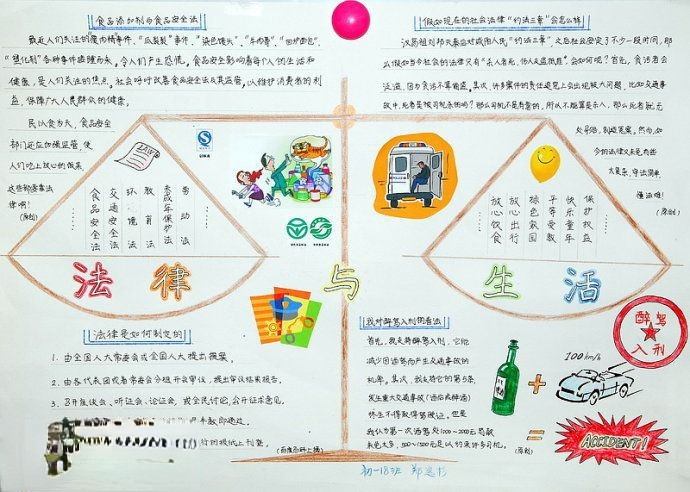 食品添加剂与食品安全法
最近人们关注的"瘦肉精"事件、"瓜裂裂"事件、"染色馒头"、"牛肉膏"、"回炉面包"、
"塑化剂"各种事件连踵而来，令人们产生恐慌。食品安全影响着每个人的生活和
健康，是人们关注的焦点。社会呼吁改善食品安全法及其监管，以维护消费者的利
益，保障广大人民群众的健康。
民以食为天，食品安全
部门还应加强监管，使
人们吃上放心的饭菜
啊！
(原创)
假如现在的社会法律"约法三章"会怎么样
汉高祖刘邦
"约法三章"之后社会安定了不少一段时间，那
么假如当今社会的法律只有"杀人者死，伤人及盗抵罪"会如何呢？首先，贪污者会
泛滥，因为贪污不算偷盗。其次，许多案件的责任追究上会出现极大问题，比如交通事
故中，死者是被司机杀的吗？那么司机不是有意的，所以不能算是杀人，那么死者就无
处寻冤，制造冤案。然而，如
今的法律
太复杂，守法简单
懂法难！
(原创)
LAW
食品安全法
交通安全法
环境法
教育法
未成年保护法
劳动法
放心饮食
放心出行
绿色家园
平等受教
快乐童年
保护权益
法律与生活
法律是如何制定的
1、由全国人大常委会或全国人大提出提案，
2、由各代表团或者常委会分组开会审议，提出审议结果报告。
3、召开座谈会、听证会、论证会，或全民讨论，公开征求意见。
行的报纸上刊登。
(百度百科上摘)
我对醉驾入刑的看法
首先，我支持醉驾入刑，它能
减少因酒驾而产生交通事故的
机率。其次，我支持它的第5条，
发生重大交通事故（酒后或醉酒）
终生不得取得驾驶证。但是
我认为第一次酒驾处1000~2000元罚款
(原创)
醉驾
入刑
100km/h
+
=
ACCIDENT!
初一18班